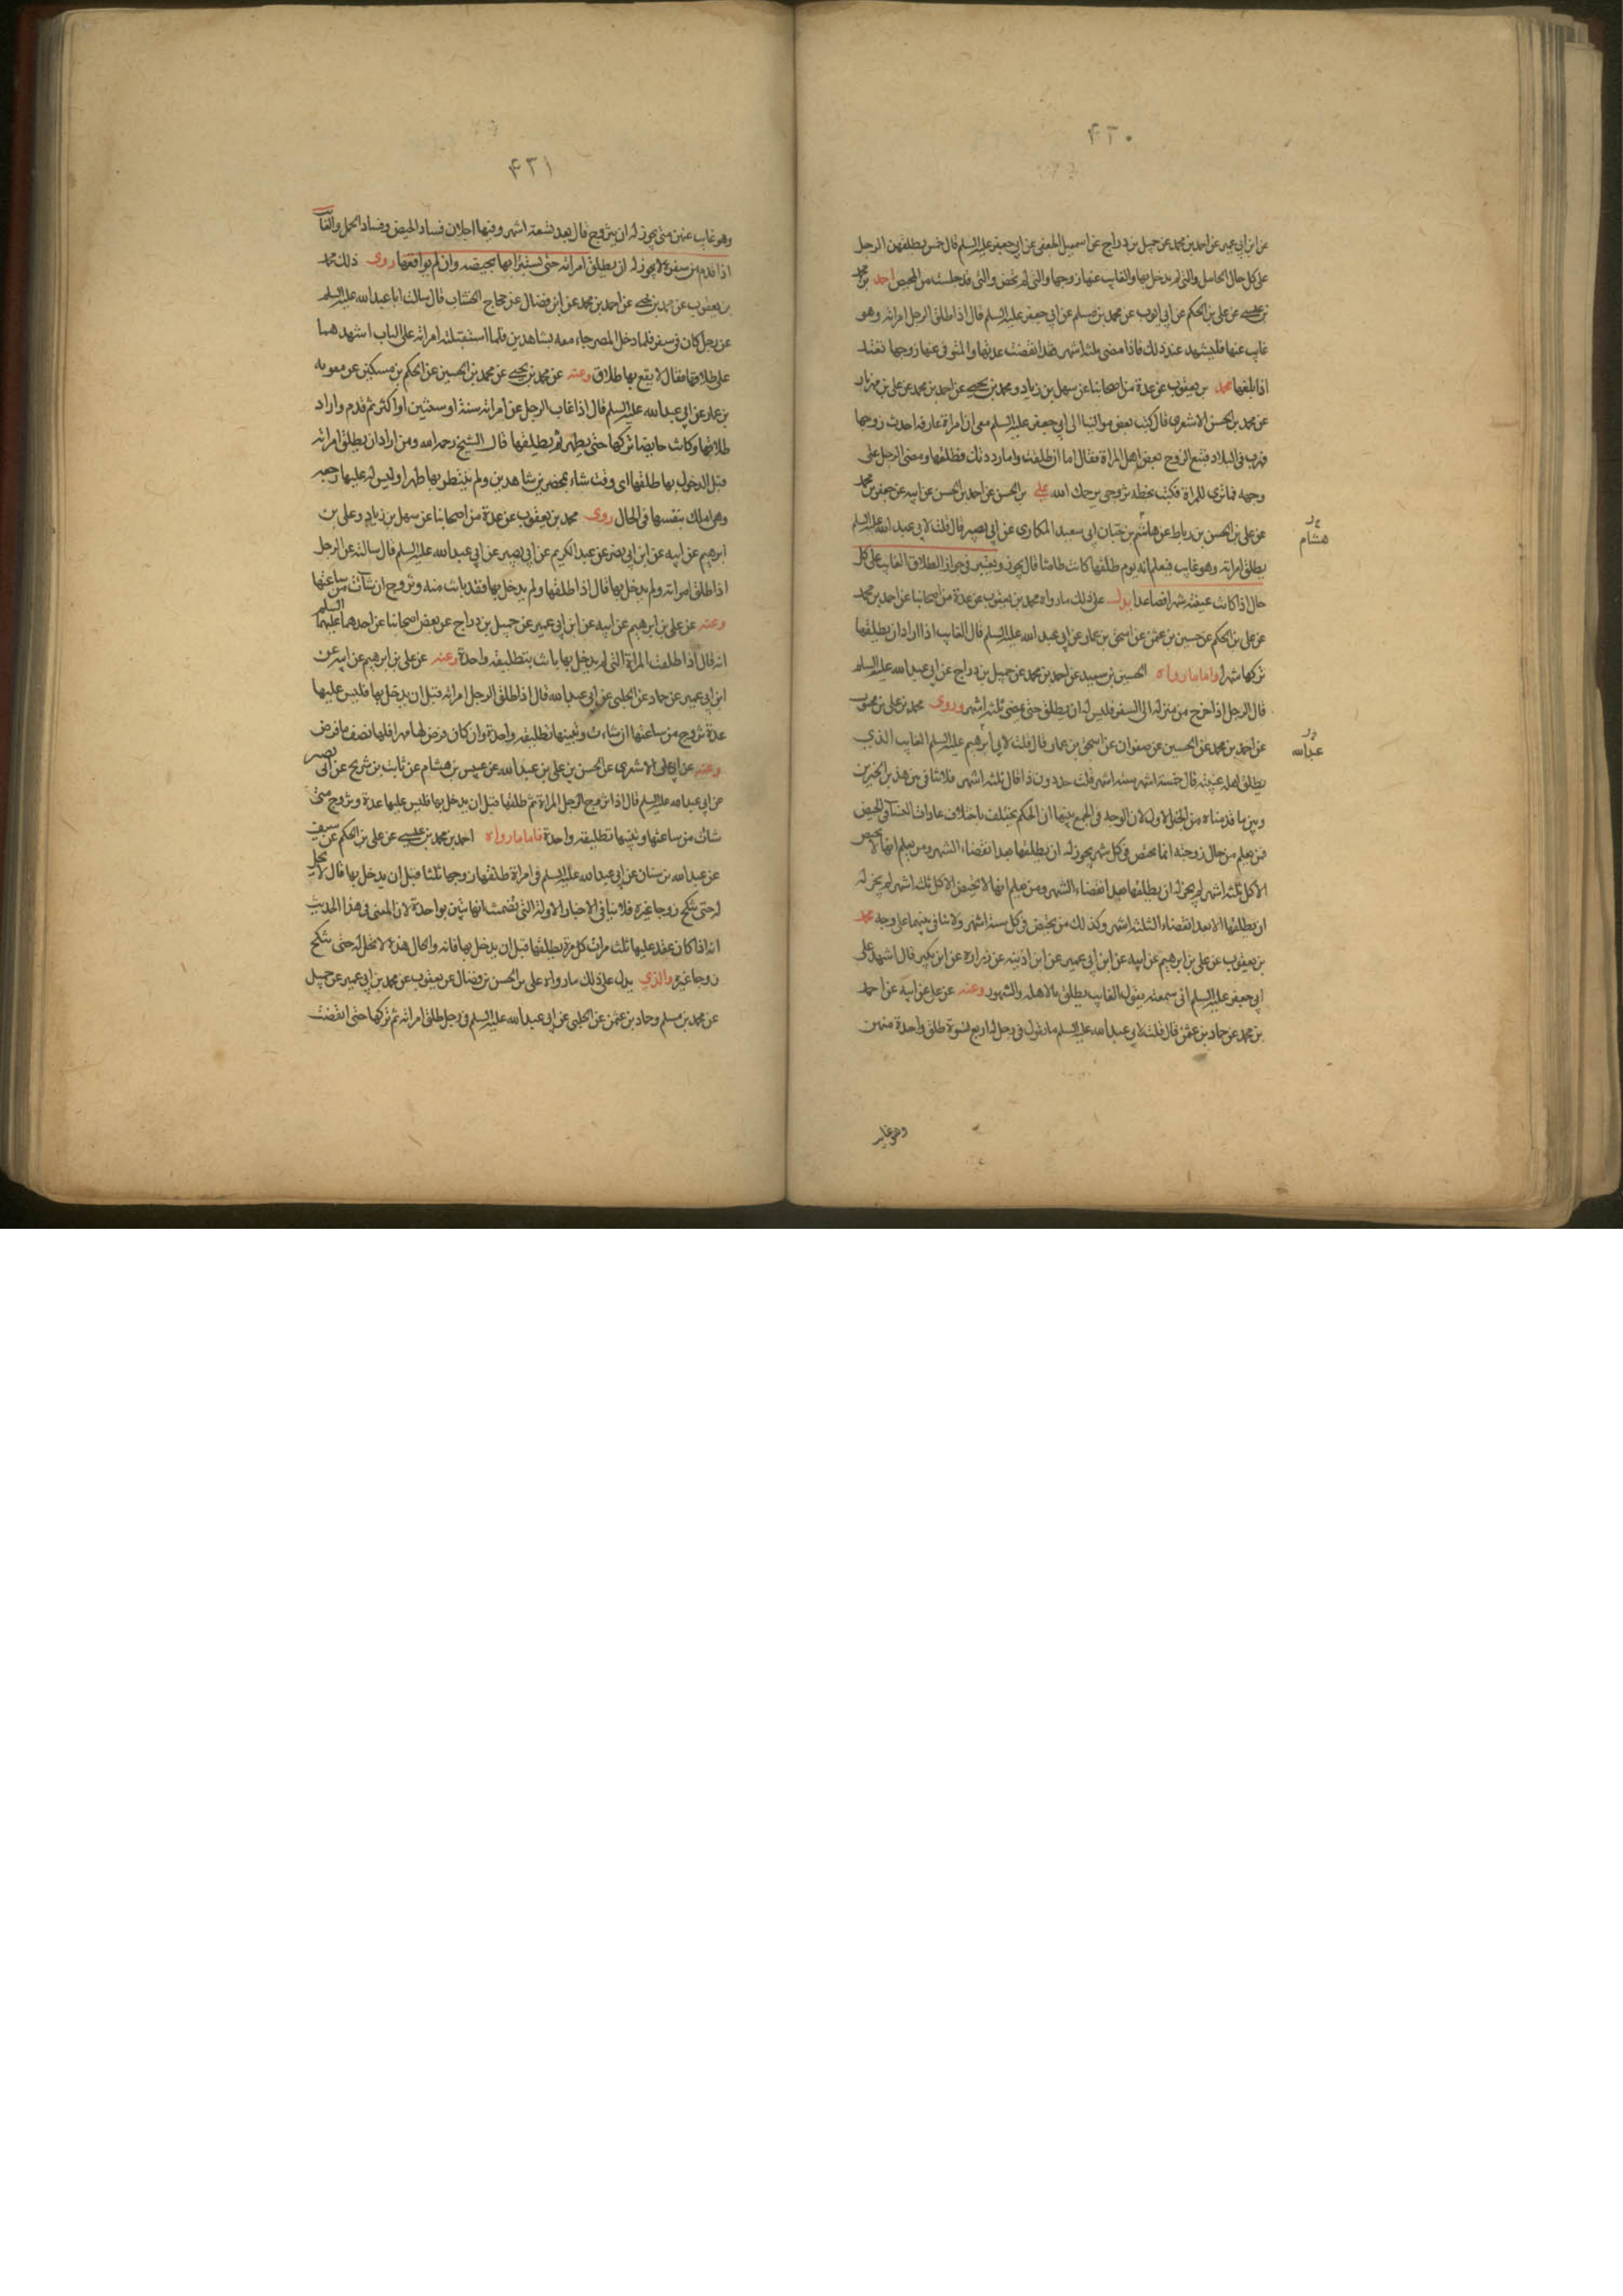 ٤٢٠
عن ابن ابي عمير عن احمد بن محمد عن جميل بن دراج عن اسمعيل الجعفي عن ابي جعفر عليه السلم قال خمس يطلقهن الرجل
على كل حال الحامل والتي لم يدخل بها والغايب عنها زوجها والتي لم تحض والتي قد جلست من المحيض احمد بن محمد
بن عيسى عن علي بن الحكم عن ابي ايوب عن محمد بن مسلم عن ابي جعفر عليه السلم قال اذا طلق الرجل امراته وهو
غايب عنها فليشهد عند ذلك فاذا مضى ثلثة اشهر فقد انقضت عدتها والمتوفى عنها زوجها تعتد
اذا بلغها محمد بن يعقوب عن عدة من اصحابنا عن سهل بن زياد ومحمد بن يحيى عن احمد بن محمد عن علي بن مهزيار
عن محمد بن الحسن الاشعري قال كتب بعض موالينا الى ابي جعفر عليه السلم معي ان امراة عارفة احدث زوجها
فهرب في البلاد فتبع الزوج بعض اهل المراة فقال اما ان طلقت واما رددتك فطلقها ومضى الرجل على
وجهه فما ترى للمراة فكتب بخطه تزوجي يرحمك الله علي بن الحسن عن احمد بن الحسن عن ابيه عن جعفر بن محمد
عن علي بن الحسن بن رباط عن هاشم بن حيان ابي سعيد المكاري عن ابي بصير قال قلت لابي عبد الله عليه السلم
هشام
يطلق امراته وهو غايب فيعلم انه يوم طلقها كانت طامثا قال يجوز ويعتبر في جواز الطلاق الغايب على كل
حال اذا كانت غيبته شهرا فصاعدا يدل على ذلك ما رواه محمد بن يعقوب عن عدة من اصحابنا عن احمد بن محمد
عن علي بن الحكم عن حسين بن عثمن عن اسحق بن عمار عن ابي عبد الله عليه السلم قال الغايب اذا اراد ان يطلقها
تركها شهرا واما ما رواه الحسين بن سعيد عن احمد بن محمد عن جميل بن دراج عن ابي عبد الله عليه السلم
قال الرجل اذا خرج من منزله الى السفر فليس له ان يطلق حتى يمضي ثلثة اشهر وروى محمد بن علي بن محبوب
عن احمد بن محمد عن الحسين عن صفوان عن اسحق بن عمار قال قلت لابي ابرهيم عليه السلم الغايب الذي
عبدالله
يطلق اهله غيبته قال خمسة اشهر ستة اشهر قلت حد دون ذا قال ثلثة اشهر فلا تنافي بين هذين الخبرين
وبين ما قدمناه من الخبر الاول لان الوجه في الجمع بينهما ان الحكم يختلف باختلاف عادات النساء في الحيض
فمن يعلم من حال زوجته انها تحيض في كل شهر يجوز له ان يطلقها بعد انقضاء الشهر ومن يعلم انها لا تحيض
الا كل ثلثة اشهر لم يجز له ان يطلقها بعد انقضاء الشهر ومن يعلم انها لا تحيض الا كل ثلثة اشهر لم يجز له
ان يطلقها الا بعد انقضاء الثلثة اشهر وكذلك من تحيض في كل ستة اشهر ولا تنافي بينهما على وجه محمد
بن يعقوب عن علي بن ابرهيم عن ابيه عن ابن ابي عمير عن ابن اذينه عن زراره عن ابن بكير قال اشهد على
ابي جعفر عليه السلم اني سمعته يقول الغايب يطلق بالاهلة والشهور وعنه عن علي عن ابيه عن احمد
بن محمد عن حماد بن عثمن قال قلت لابي عبد الله عليه السلم ما تقول في رجل له اربع نسوة طلق واحدة منهن
وهو غايب
٤٢١
وهو غايب عنهن متى يجوز له ان يتزوج قال بعد تسعة اشهر وفيها اجلان فساد الحيض وفساد الحمل والغايب
اذا قدم من سفره لا يجوز له ان يطلق امراته حتى يستبرأيها بحيضه وان لم يواقعها روى ذلك محمد
بن يعقوب عن محمد بن يحيى عن احمد بن محمد عن ابن فضال عن حجاج الخشاب قال سالت ابا عبد الله عليه السلم
عن رجل كان في سفر فلما دخل المصر جاء معه بشاهدين فلما استقبلته امراته على الباب اشهدهما
على طلاقها فقال لا يقع بها طلاق وعنه عن محمد بن يحيى عن محمد بن الحسين عن الحكم بن مسكين عن معويه
بن عمار عن ابي عبد الله عليه السلم قال اذا غاب الرجل عن امراته سنة او سنتين او اكثر ثم قدم واراد
طلاقها وكانت حايضا تركها حتى يطهر ثم يطلقها قال الشيخ رحمه الله ومن اراد ان يطلق امراته
قبل الدخول بها طلقها اي وقت شاء بمحضر من شاهدين ولم ينتظر بها طهرا وليس له عليها رجعه
وهي املك بنفسها في الحال روى محمد بن يعقوب عن عدة من اصحابنا عن سهل بن زياد وعلي بن
ابرهيم عن ابيه عن ابن ابي نصر عن عبد الكريم عن ابي بصير عن ابي عبد الله عليه السلم قال سالته عن الرجل
اذا طلق امراته ولم يدخل بها قال اذا طلقها ولم يدخل بها فقد بانت منه وتزوج ان شاءت من ساعتها
وعنه عن علي بن ابرهيم عن ابيه عن ابن ابي عمير عن جميل بن دراج عن بعض اصحابنا عن احدهما عليهما السلم
انه قال اذا طلقت المراة التي لم يدخل بها بانت بتطليقه واحدة وعنه عن علي بن ابرهيم عن ابيه عن
ابن ابي عمير عن حماد عن الحلبي عن ابي عبد الله قال اذا طلق الرجل امراته قبل ان يدخل بها فليس عليها
عدة تزوج من ساعتها ان شاءت وتبينها تطليقه واحدة وان كان فرض لها مهرا فلها نصف ما فرض
وعنه عن ابي علي الاشعري عن الحسن بن علي بن عبد الله عن عبيس بن هشام عن ثابت بن شريح عن ابي بصير
عن ابي عبد الله عليه السلم قال اذا تزوج الرجل المراة ثم طلقها قبل ان يدخل بها فليس عليها عدة وتزوج متى
شاءت من ساعتها وتبينها تطليقه واحدة فاما ما رواه احمد بن محمد بن عيسى عن علي بن الحكم عن سيف
عن عبد الله بن سنان عن ابي عبد الله عليه السلم في امراة طلقها زوجها ثلثا قبل ان يدخل بها قال لا يحل
له حتى تنكح زوجا غيره فلا ينافي الاخبار الاولة التي تضمنت انها تبين بواحدة لان المعنى في هذا الحديث
انه اذا كان عقد عليها ثلث مرات كل مرة يطلقها قبل ان يدخل بها فانه والحال هذه لا تحل له حتى تنكح
زوجا غيره والذي يدل على ذلك ما رواه علي بن الحسن بن فضال عن يعقوب عن محمد بن ابي عمير عن جميل
عن محمد بن مسلم وحماد بن عثمن عن الحلبي عن ابي عبد الله عليه السلم في رجل طلق امراته ثم تركها حتى انقضت